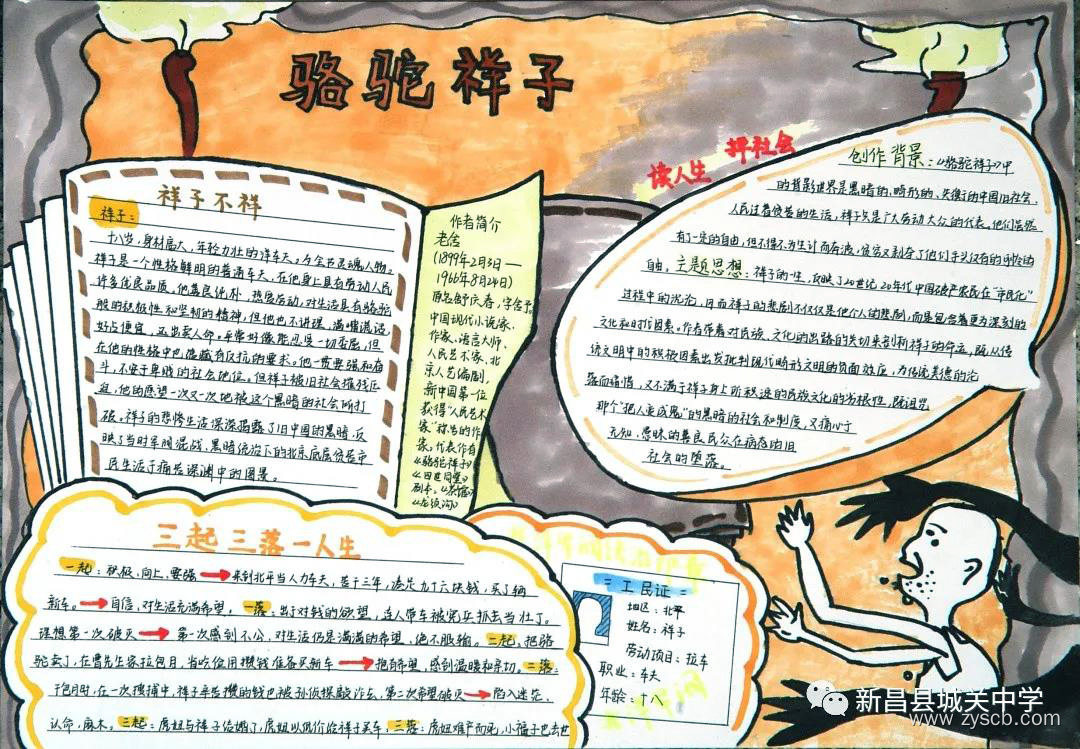 骆驼祥子
读人生 评社会
祥子不祥
祥子:
十八岁,身材高大,年轻力壮的洋车夫,为全书灵魂人物。
祥子是一个性格鲜明的普通车夫,在他身上具有劳动人民
许多优良品质。他善良纯朴,热爱劳动,对生活具有骆驼
般的积极性和坚韧的精神,但他也不讲理,满嘴混话
好占便宜,还出卖人命。平常好像能忍受一切委屈,但
在他的性格中也隐藏有反抗的要求。他一贯要强和奋
斗,不安于卑贱的社会地位。但祥子被旧社会摧残压
迫,他的愿望一次又一次地被这个黑暗的社会所打
破。祥子的悲惨生活深深揭露了旧中国的黑暗,反
映了当时军阀混战、黑暗统治下的北京底层贫苦市
民生活于痛苦深渊中的图景。
作者简介
老舍
(1899年2月3日—
1966年8月24日)
原名舒庆春,字舍予。
中国现代小说家、
作家、语言大师、
人民艺术家、北
京人艺编剧,
新中国第一位
获得“人民艺术
家”称号的作
家。代表作有
《骆驼祥子》
《四世同堂》
剧本:《茶馆》
《龙须沟》
创作背景:《骆驼祥子》中
的背景世界是黑暗的、畸形的、失衡的中国旧社会,
人民过着贫苦的生活,祥子只是广大劳动大众的代表。他们虽然
有了一定的自由,但不得不为生计而奔波,贫穷又剥夺了他们手头仅有的可怜的
自由。主题思想:祥子的一生,反映了20世纪20年代中国破产农民在“市民化”
过程中的沉沦,因而祥子的悲剧不仅仅是他个人的悲剧,而是包含着更为深刻的
文化和时代因素。作者带着对民族、文化的出路的关切来剖析祥子的命运,既从传
统文明中的积极因素出发批判现代畸形文明的负面效应,为传统美德的沦
落而痛惜,又不满于祥子身上所积淀的民族文化的劣根性,既诅咒
那个“把人变成鬼”的黑暗的社会和制度,又痛心于
无知、愚昧的善良民众在病态的旧
社会的堕落。
三起三落一人生
一起:积极,向上,要强→来到北平当人力车夫,苦干三年,凑足九十六块钱,买了辆
新车。→自信,对生活充满希望,一落:出于对钱的欲望,连人带车被宪兵抓去当壮丁。
理想第一次破灭→第一次感到不公,对生活仍是满满的希望,绝不服输。二起:把骆
驼卖了,在曹先生家拉包月,省吃俭用攒钱准备买新车→抱有希望,感到温暖和亲切。二落:
干包月时,在一次搜捕中,祥子辛苦攒的钱也被孙侦探敲诈去,第二次希望破灭→陷入迷茫,
认命,麻木。三起:虎妞与祥子结婚了,虎妞以低价给祥子买车;三落:虎妞难产而死,小福子也去世
工民证
地区:北平
姓名:祥子
劳动项目:拉车
职业:车夫
年龄:十八
新昌县城关中学
www.zyscb.com